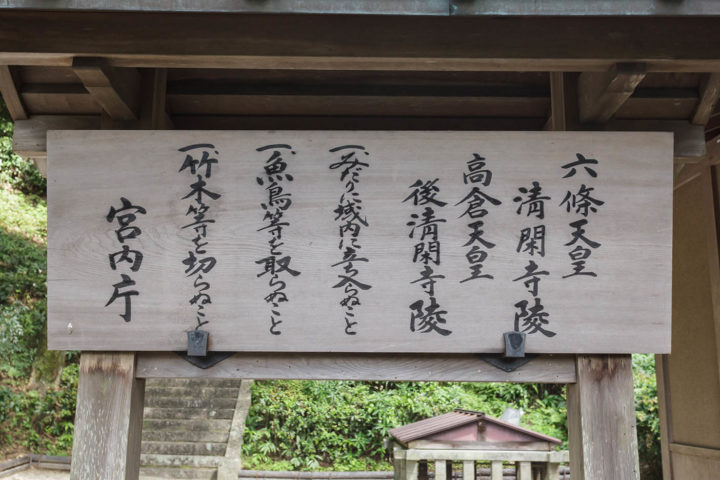 六條天皇
清閑寺陵
高倉天皇
後清閑寺陵
一、みだりに域内に立ち入らぬこと
一、魚鳥等を取らぬこと
一、竹木等を切らぬこと
宮内庁